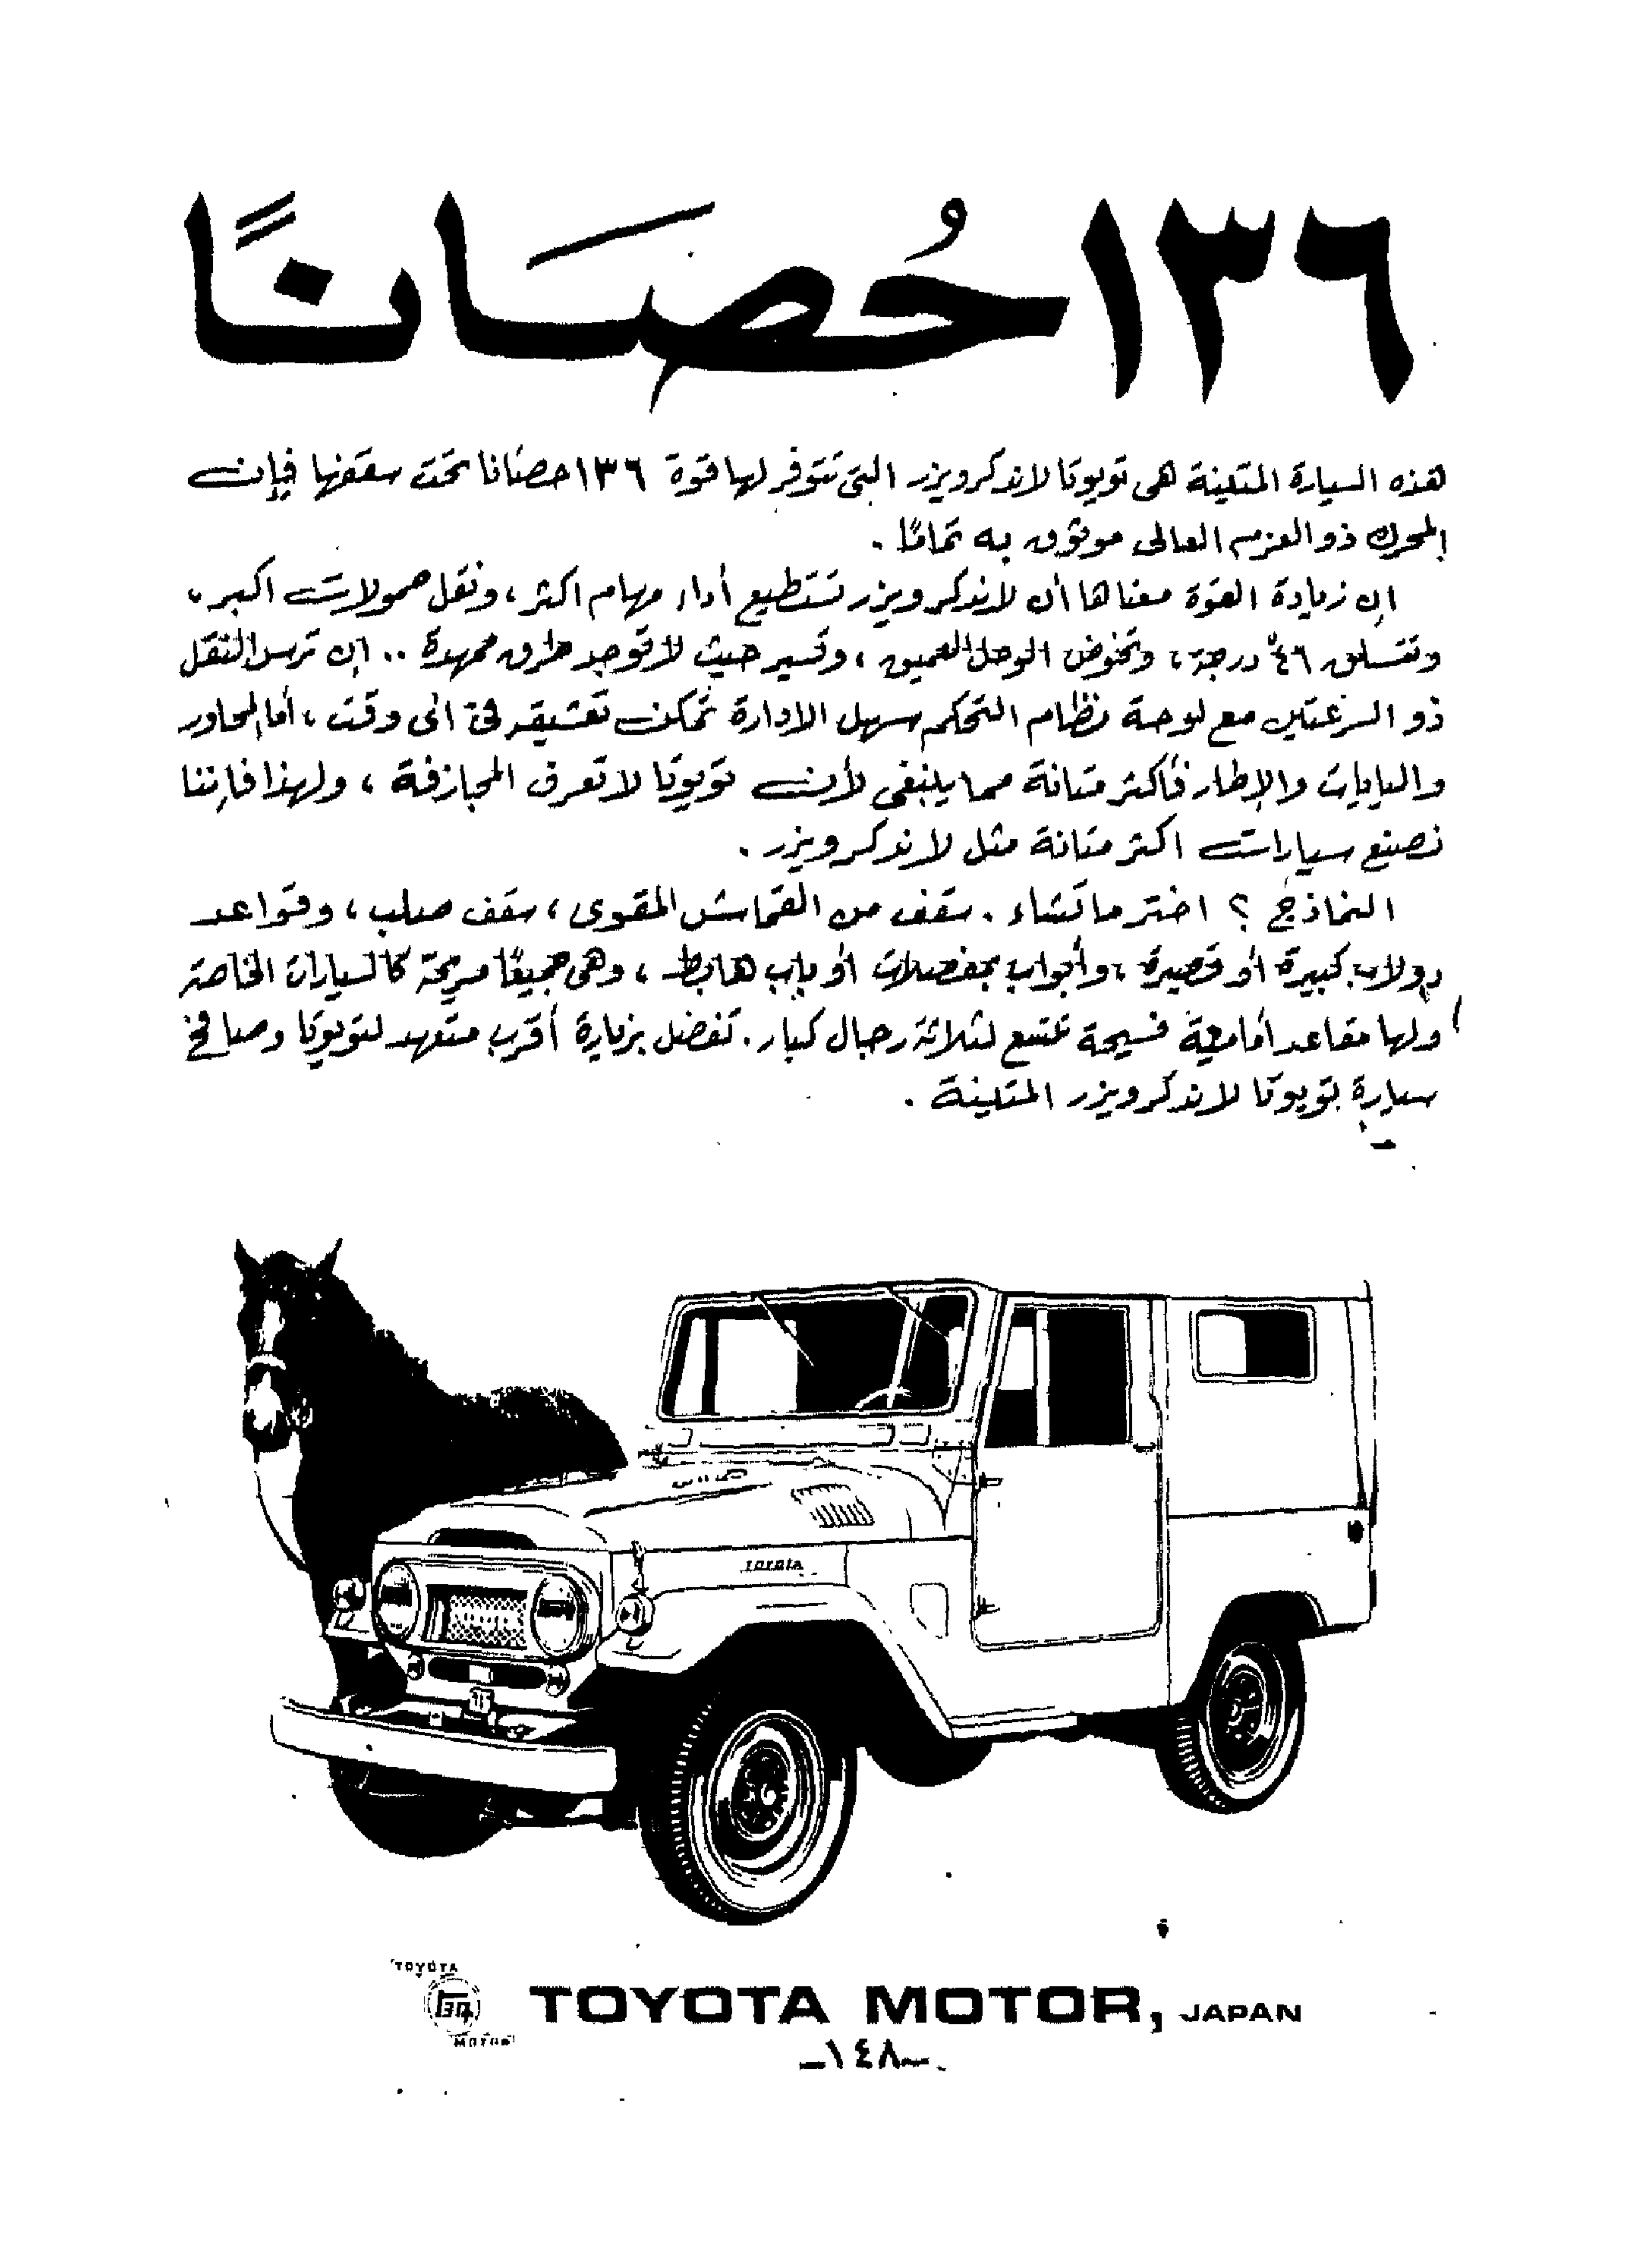 ١٣٦ حُصَانًا
هذه السيارة المتينة هى تويوتا لاندكرويزر التى تتوفر لها قوة ١٣٦ حصانا تحت سقفها فإن
المحرك ذو العزم العالى موثوق به تمامًا .
ان زيادة القوة معناها أن لاندكرويزر تستطيع أداء مهام اكثر ، ونقل حمولات اكبر ،
وتتسلق ٤٦° درجة ، وتخوض الوحل العميق ، وتسير حيث لا توجد طرق ممهدة .. ان ترس النقل
ذو السرعتين مع لوحة نظام التحكم سهل الادارة تمكن تعشيقه فى اى وقت ، أما المحاور
واليايات والإطار فأكثر متانة مما ينبغى لأن تويوتا لا تعرف المجازفة ، ولهذا فإننا
نصنع سيارات اكثر متانة مثل لاندكرويزر .
النماذج ؟ اختر ما تشاء . سقف من القماش المقوى ، سقف صلب ، وقواعد
دولاب كبيرة أو قصيرة ، وأبواب بمفصلات أو باب هابط ، وهى جميعًا مريحة كالسيارات الخاصة
ولها مقاعد أمامية فسيحة تتسع لثلاثة رجال كبار . تفضل بزيارة أقرب متعهد لتويوتا وصافح
سيارة تويوتا لاندكرويزر المتينة .
TOYOTA
TOYOTA
MOTOR
TOYOTA MOTOR, JAPAN
-١٤٨-